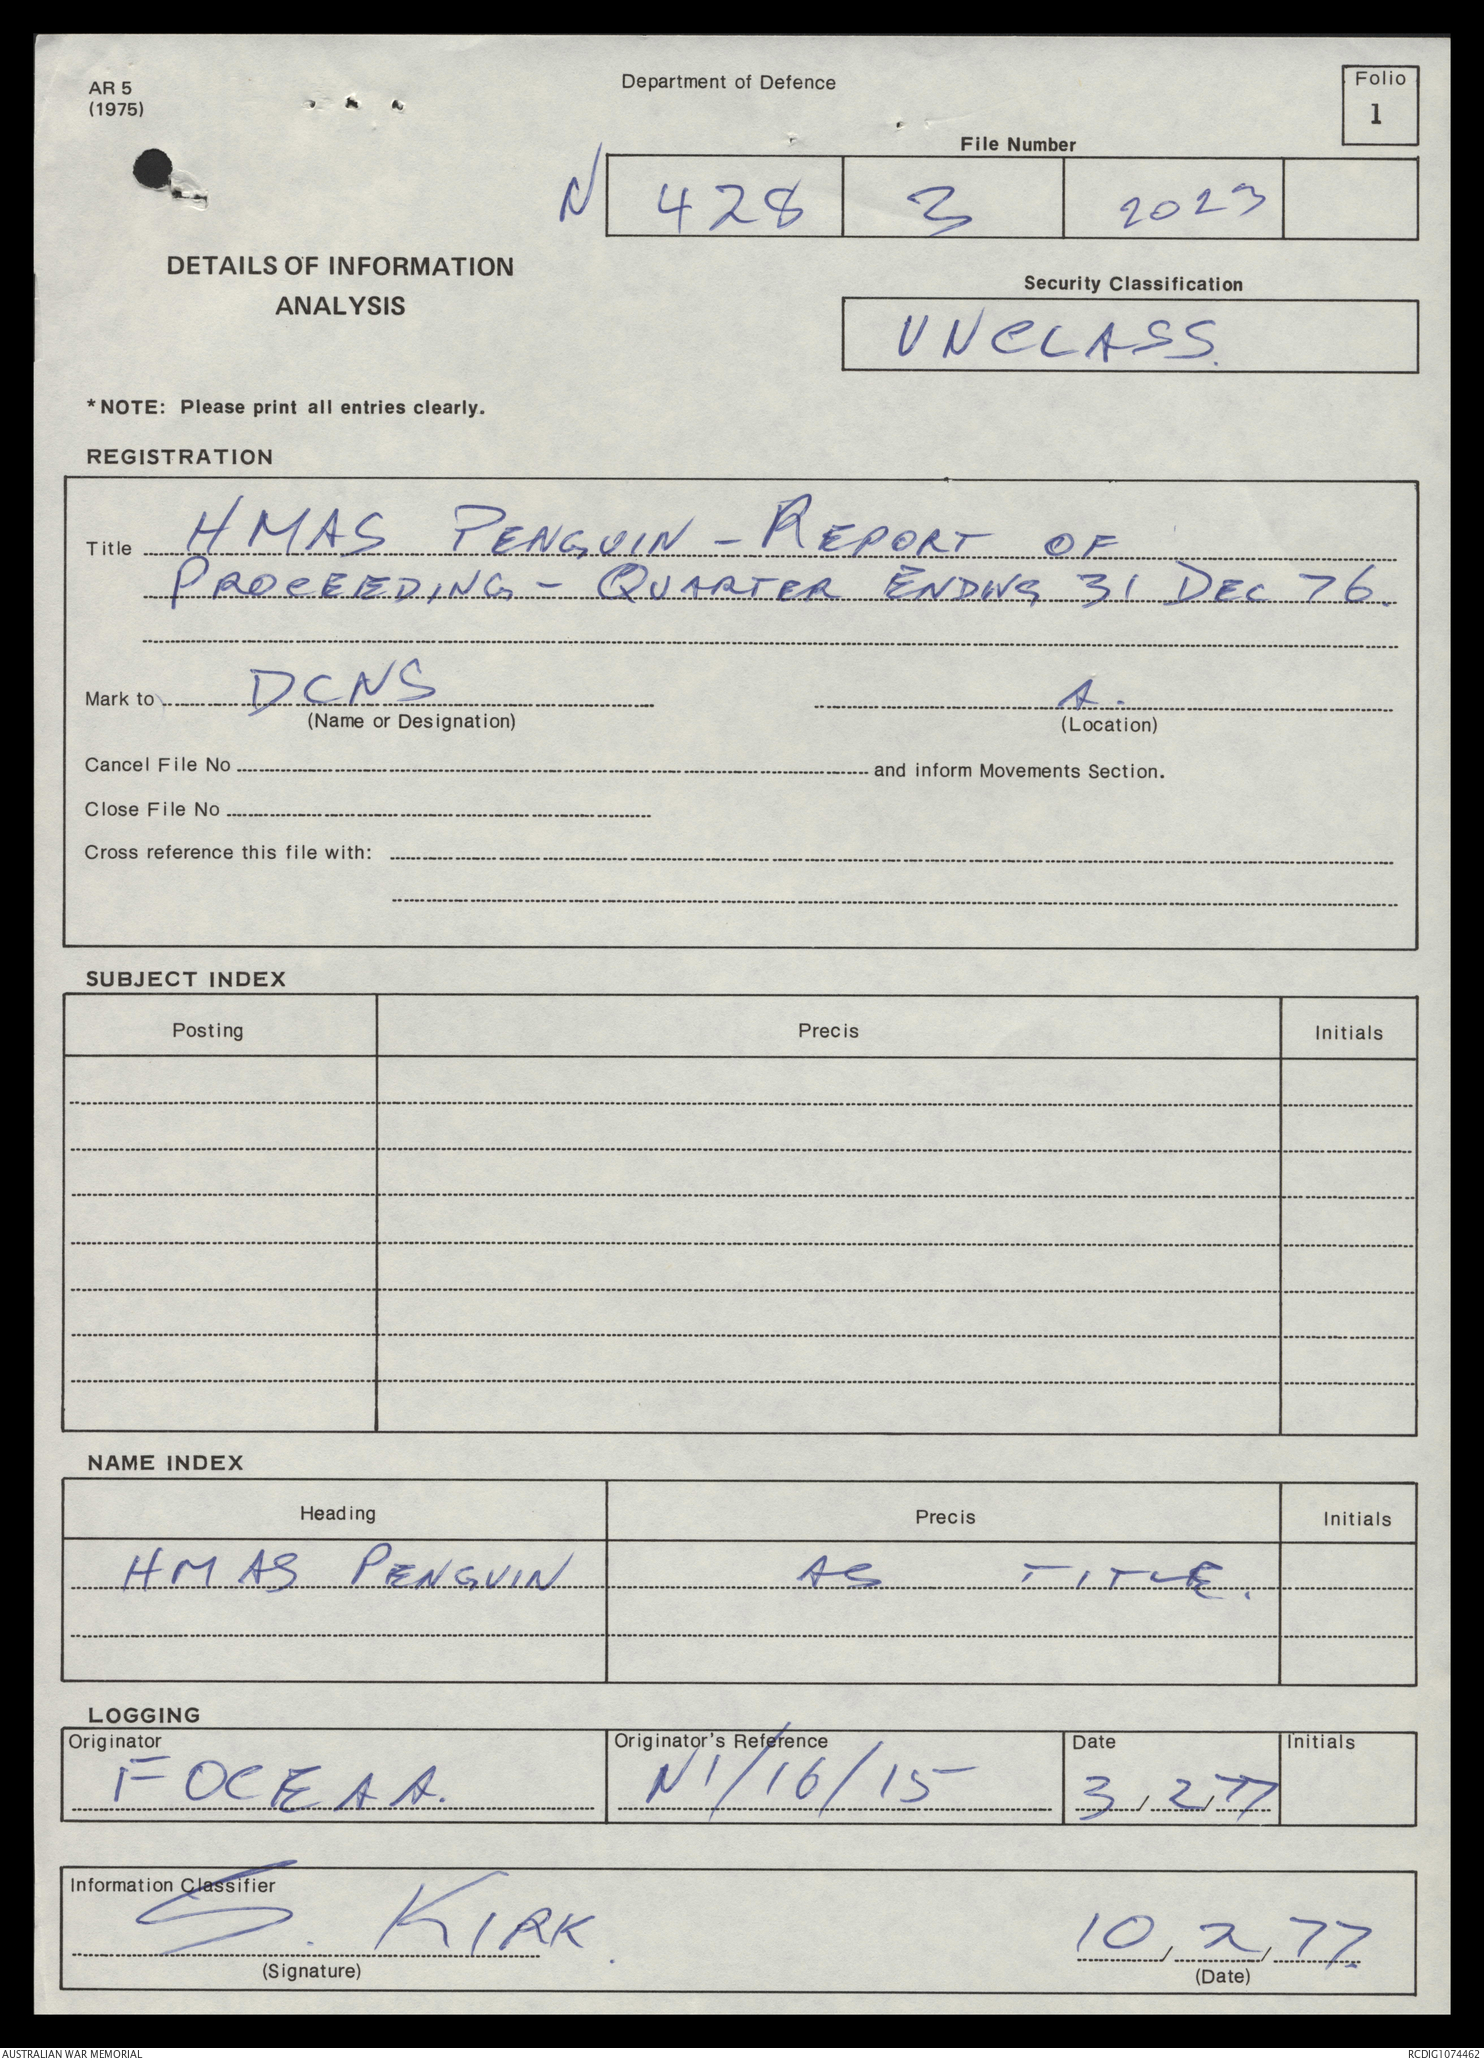 AR 5
(1975)
Department of Defence
Folio
1
File Number
N 428 3 2023
DETAILS OF INFORMATION
ANALYSIS
Security Classification
UNCLASS.
*NOTE: Please print all entries clearly.
REGISTRATION
Title HMAS PENGUIN - REPORT OF
PROCEEDING - QUARTER ENDING 31 DEC 76.
Mark to DCNS A.
(Name or Designation) (Location)
Cancel File No and inform Movements Section.
Close File No
Cross reference this file with:
SUBJECT INDEX
Posting Precis Initials
NAME INDEX
Heading Precis Initials
HMAS PENGUIN AS TITLE.
LOGGING
Originator Originator's Reference Date Initials
FOCEAA. N1/16/15 3/2/77
Information Classifier
S. KIRK. 10/2/77.
(Signature) (Date)
AUSTRALIAN WAR MEMORIAL RCDIG1074462